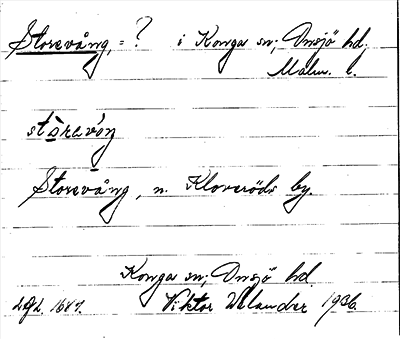 Storevång, = ? i Konga sn; Onsjö hd,
Malm. l.
stòrevóŋ
Storevång, n. Kloveröds by.
Konga sn; Onsjö hd.
LAL. 1687. Viktor Welander 1936.